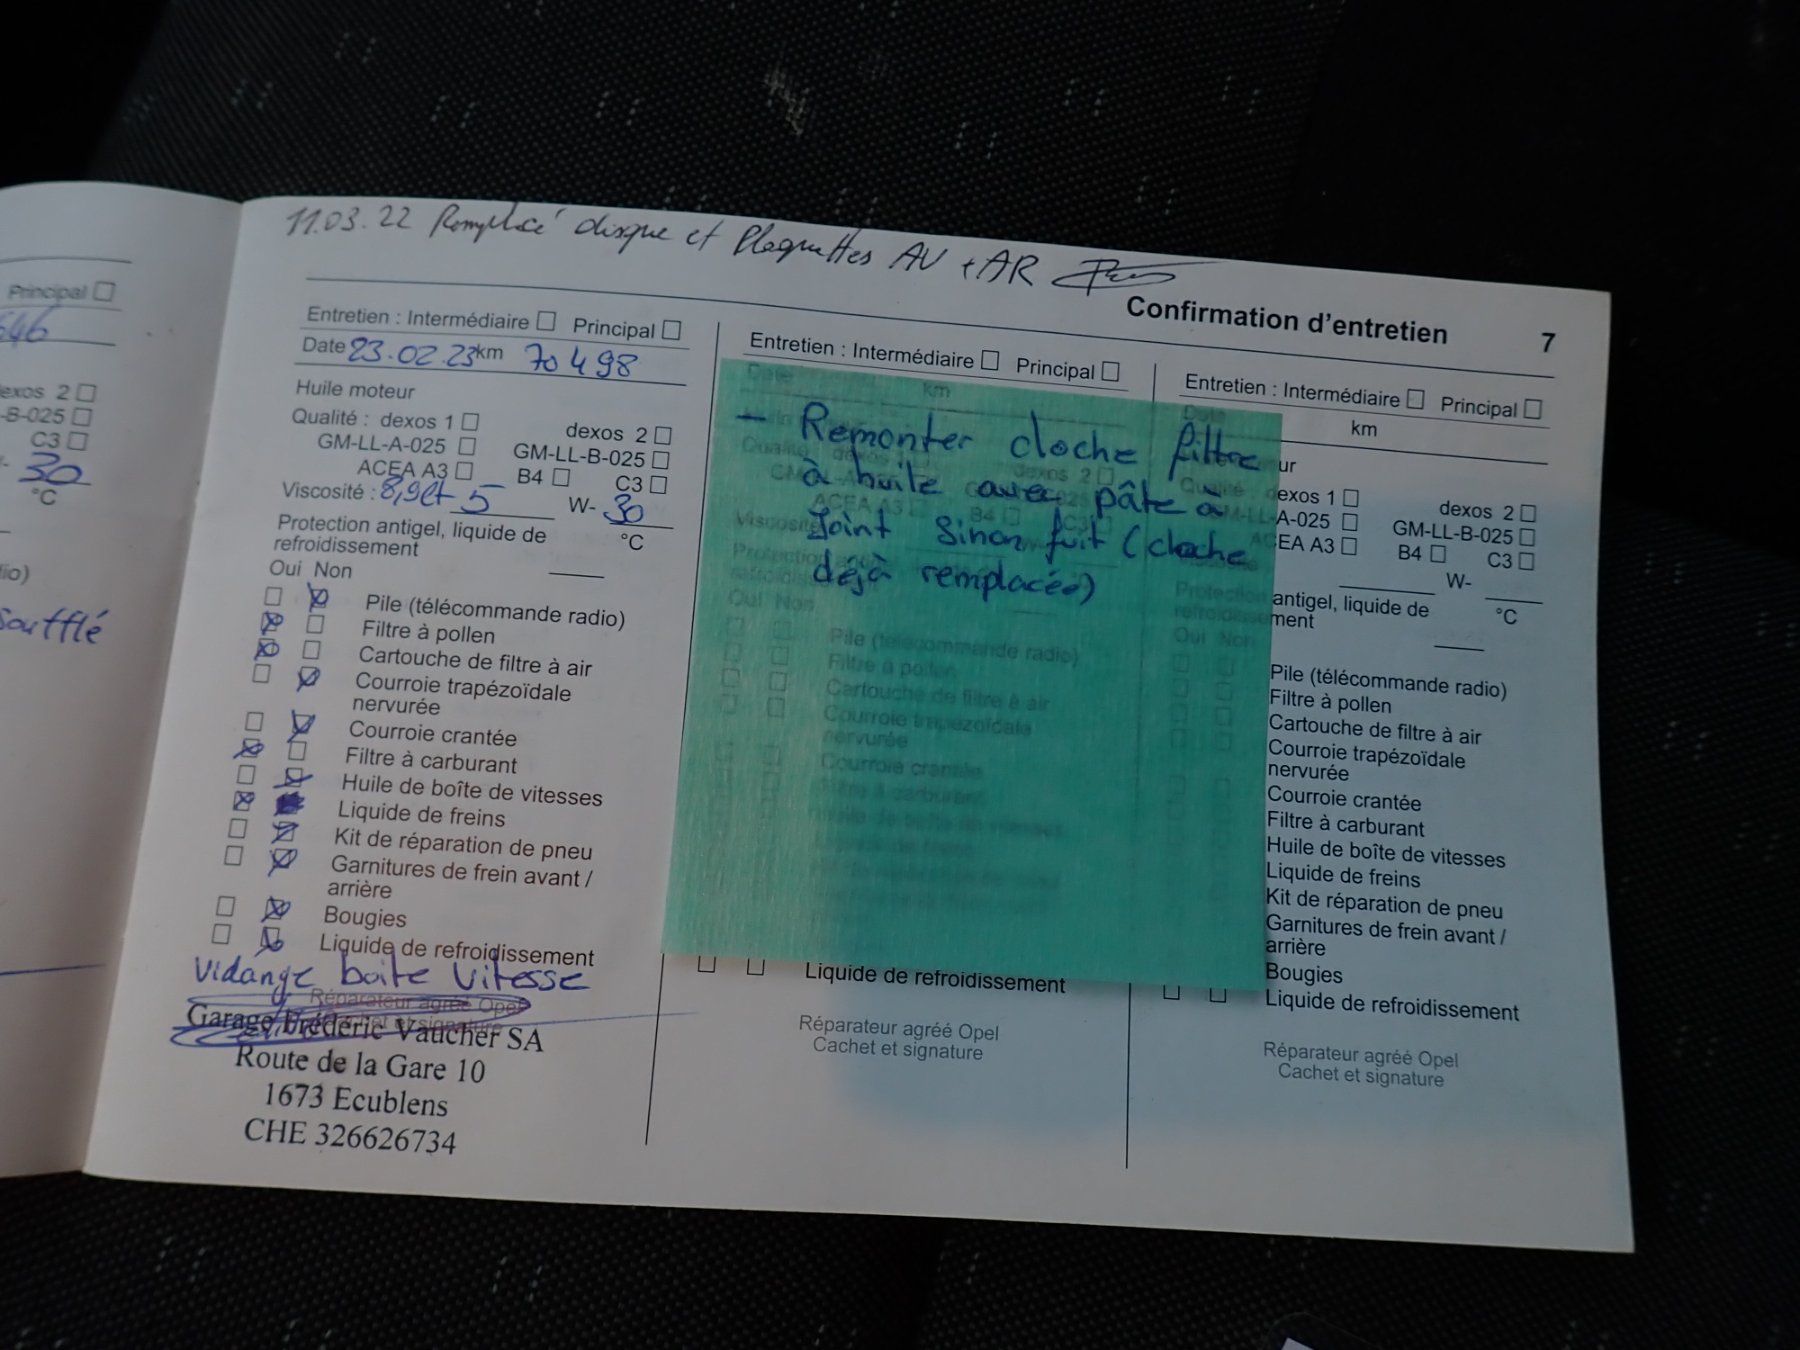 Principal
646
dexos 2
-B-025
C3
30
°C
dio)
soufflé
11.03.22 Remplacé disque et Plaquettes AV + AR
Confirmation d'entretien 7
Entretien : Intermédiaire Principal
Date 23.02.23 km 70 498
Huile moteur
Qualité : dexos 1 dexos 2
GM-LL-A-025 GM-LL-B-025
ACEA A3 B4 C3
Viscosité : 8,9lt 5 W- 30
Protection antigel, liquide de
refroidissement °C
Oui Non
Pile (télécommande radio)
Filtre à pollen
Cartouche de filtre à air
Courroie trapézoïdale
nervurée
Courroie crantée
Filtre à carburant
Huile de boîte de vitesses
Liquide de freins
Kit de réparation de pneu
Garnitures de frein avant /
arrière
Bougies
Liquide de refroidissement
Vidange boite Vitesse
Réparateur agréé Opel
Cachet et signature
Garage Frédéric Vaucher SA
Route de la Gare 10
1673 Ecublens
CHE 326626734
Entretien : Intermédiaire Principal
Date km
- Remonter cloche filtre
à huile avec pâte à
Joint Sinon fuit (cloche
déjà remplacée)
Oui Non
Pile (télécommande radio)
Filtre à pollen
Cartouche de filtre à air
Courroie trapézoïdale
nervurée
Courroie crantée
Filtre à carburant
Huile de boîte de vitesses
Liquide de refroidissement
Réparateur agréé Opel
Cachet et signature
Entretien : Intermédiaire Principal
Date km
ur
Qualité : dexos 1 dexos 2
GM-LL-A-025 GM-LL-B-025
ACEA A3 B4 C3
W-
Protection antigel, liquide de
refroidissement °C
Oui Non
Pile (télécommande radio)
Filtre à pollen
Cartouche de filtre à air
Courroie trapézoïdale
nervurée
Courroie crantée
Filtre à carburant
Huile de boîte de vitesses
Liquide de freins
Kit de réparation de pneu
Garnitures de frein avant /
arrière
Bougies
Liquide de refroidissement
Réparateur agréé Opel
Cachet et signature